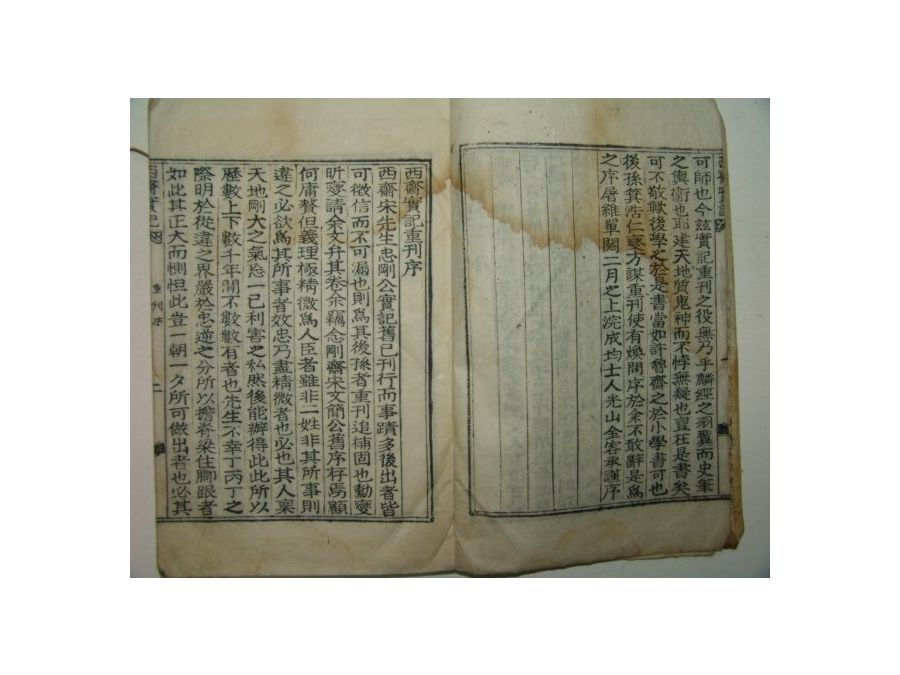 西齋實記
可師也今玆實記重刊之役無乃乎麟經之羽翼而史筆
之輿衛也耶建天地質鬼神而不悖無疑也亶在是書矣
可不敬歟後學之於是書當如許魯齋之於小學書可也
後孫箕浩仁燮方謀重刊使有煥問序於余不敢辭是爲
之序屠維單閼二月之上浣成均士人光山金容承謹序
西齋實記重刊序
西齋宋先生忠剛公實記舊已刊行而事蹟多後出者皆
可徵信而不可漏也則爲其後孫者重刊追補固也勳燮
昕燮請余文弁其卷余竊念剛齋宋文簡公舊序存焉顧
何庸贅但義理極精微爲人臣者雖非一姓非其所事則
違之必欲爲其所事者效忠乃盡精微者也必也其人稟
天地剛大之氣忘一已利害之私然後能辦得此此所以
歷數上下數千年間不數數有者也先生不幸丁丙丁之
際明於從違之界嚴於忠逆之分所以擔脊梁住脚跟者
如此其正大而惻怛此豈一朝一夕所可做出者也必其
西齋實記
重刊序
二